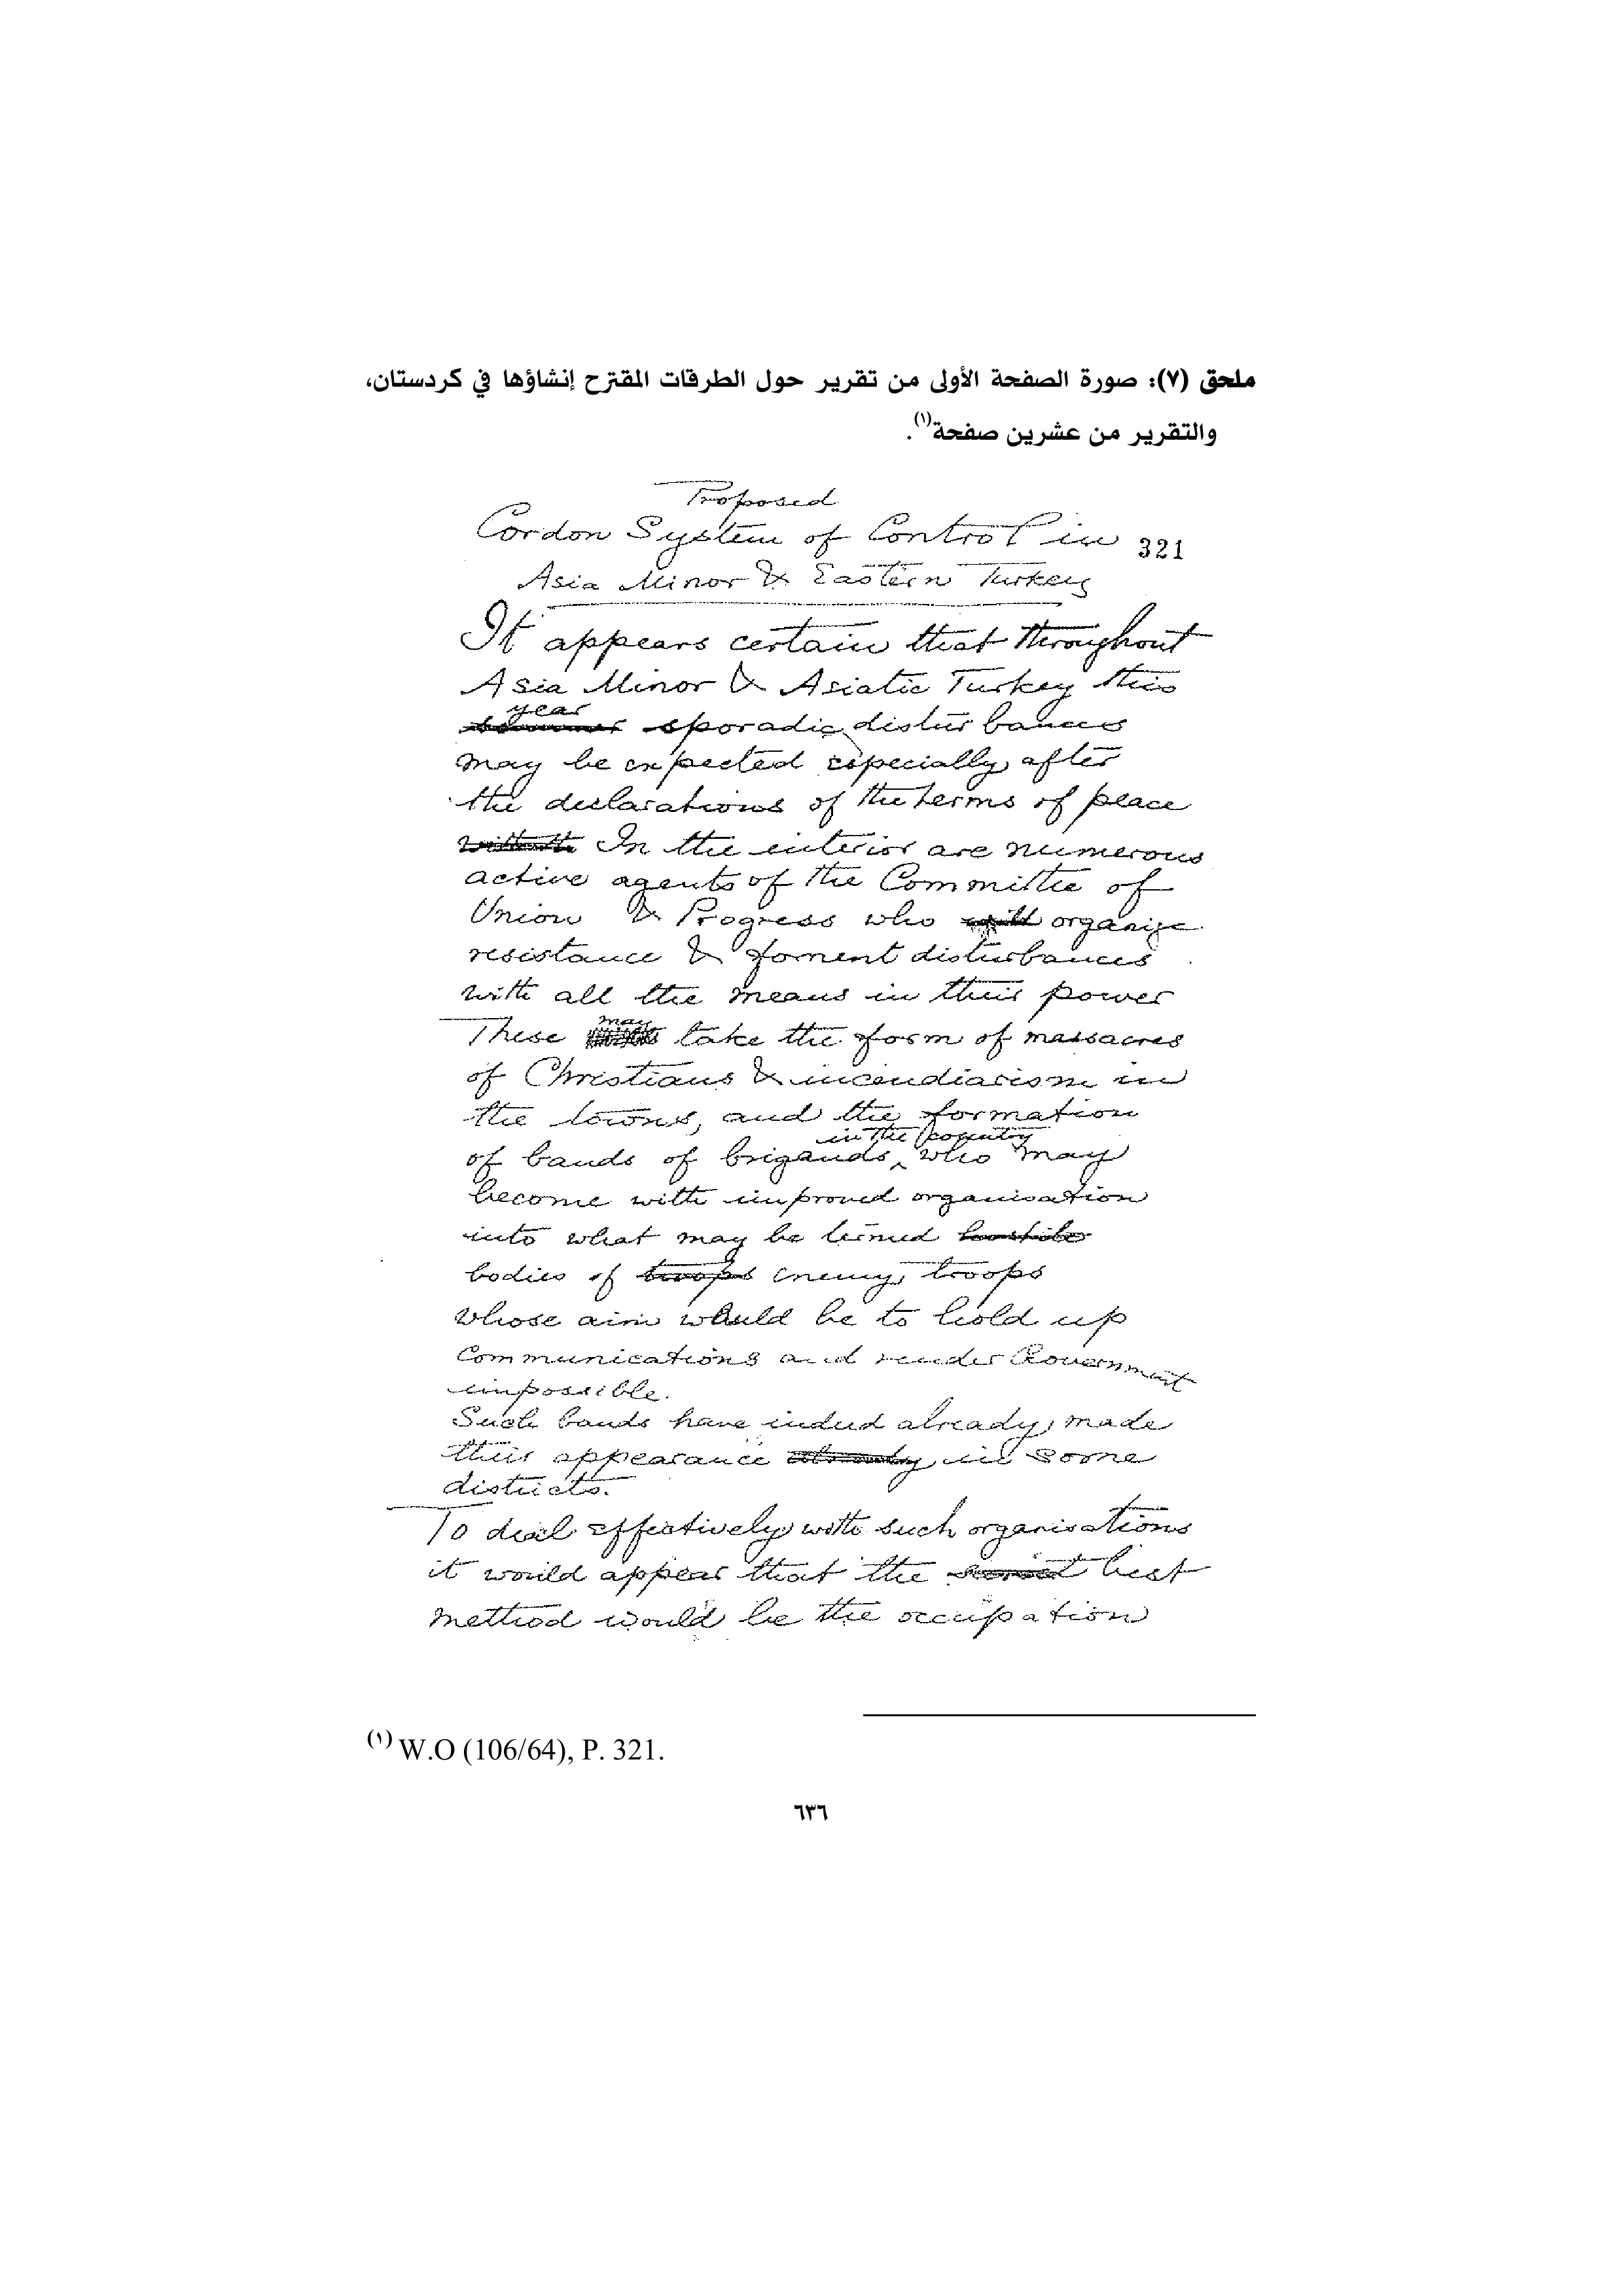 ملحق (٧): صورة الصفحة الأولى من تقرير حول الطرقات المقترح إنشاؤها في كردستان،
والتقرير من عشرين صفحة(١).
Proposed
Cordon System of Control in 321
Asia Minor & Eastern Turkey
It appears certain that throughout
Asia Minor & Asiatic Turkey this
year
sporadic disturbances
may be expected especially after
the declarations of the terms of peace
In the interior are numerous
active agents of the Committee of
Union & Progress who will organize
resistance & foment disturbances
with all the means in their power
may
These take the form of massacres
of Christians & incendiarism in
the towns, and the formation
in the country
of bands of brigands, who may
become with improved organisation
into what may be termed hostile
bodies of troops enemy, troops
whose aim would be to hold up
Communications and render Government
impossible.
Such bands have indeed already, made
their appearance already in some
districts.
To deal effectively with such organisations
it would appear that the best
method would be the occupation
(١) W.O (106/64), P. 321.
٦٣٦